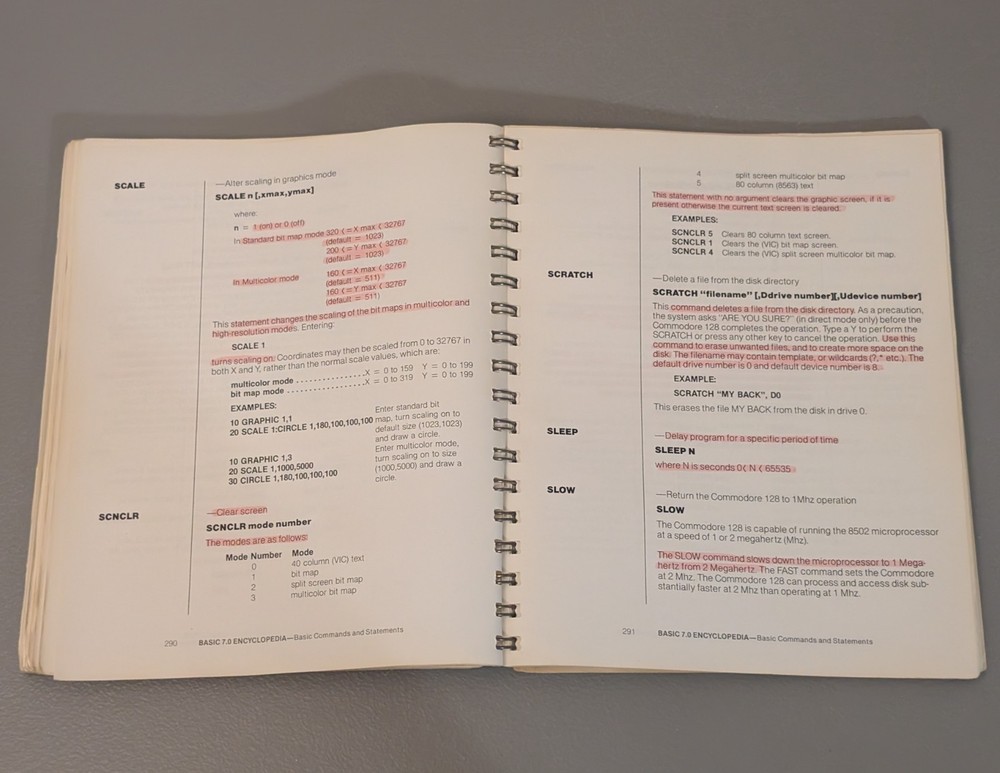 SCALE
—Alter scaling in graphics mode
SCALE n [,xmax,ymax]
where:
n = 1 (on) or 0 (off)
In Standard bit map mode 320 ⟨=X max ⟨ 32767
(default = 1023)
200 ⟨=Y max ⟨ 32767
(default = 1023)
In Multicolor mode 160 ⟨=X max ⟨ 32767
(default = 511)
160 ⟨=Y max ⟨ 32767
(default = 511)
This statement changes the scaling of the bit maps in multicolor and
high-resolution modes. Entering:
SCALE 1
turns scaling on. Coordinates may then be scaled from 0 to 32767 in
both X and Y, rather than the normal scale values, which are:
multicolor mode ...............X = 0 to 159 Y = 0 to 199
bit map mode ..................X = 0 to 319 Y = 0 to 199
EXAMPLES:
10 GRAPHIC 1,1 Enter standard bit
20 SCALE 1:CIRCLE 1,180,100,100,100 map, turn scaling on to
default size (1023,1023)
and draw a circle.
10 GRAPHIC 1,3 Enter multicolor mode,
20 SCALE 1,1000,5000 turn scaling on to size
30 CIRCLE 1,180,100,100,100 (1000,5000) and draw a
circle.
SCNCLR
—Clear screen
SCNCLR mode number
The modes are as follows:
Mode Number Mode
0 40 column (VIC) text
1 bit map
2 split screen bit map
3 multicolor bit map
290 BASIC 7.0 ENCYCLOPEDIA—Basic Commands and Statements
4 split screen multicolor bit map
5 80 column (8563) text
This statement with no argument clears the graphic screen, if it is
present otherwise the current text screen is cleared.
EXAMPLES:
SCNCLR 5 Clears 80 column text screen.
SCNCLR 1 Clears the (VIC) bit map screen.
SCNCLR 4 Clears the (VIC) split screen multicolor bit map.
SCRATCH
—Delete a file from the disk directory
SCRATCH "filename" [,Ddrive number][,Udevice number]
This command deletes a file from the disk directory. As a precaution,
the system asks "ARE YOU SURE?" (in direct mode only) before the
Commodore 128 completes the operation. Type a Y to perform the
SCRATCH or press any other key to cancel the operation. Use this
command to erase unwanted files, and to create more space on the
disk. The filename may contain template, or wildcards (?,* etc.). The
default drive number is 0 and default device number is 8.
EXAMPLE:
SCRATCH "MY BACK", D0
This erases the file MY BACK from the disk in drive 0.
SLEEP
—Delay program for a specific period of time
SLEEP N
where N is seconds 0⟨ N ⟨ 65535
SLOW
—Return the Commodore 128 to 1Mhz operation
SLOW
The Commodore 128 is capable of running the 8502 microprocessor
at a speed of 1 or 2 megahertz (Mhz).
The SLOW command slows down the microprocessor to 1 Mega-
hertz from 2 Megahertz. The FAST command sets the Commodore
at 2 Mhz. The Commodore 128 can process and access disk sub-
stantially faster at 2 Mhz than operating at 1 Mhz.
291 BASIC 7.0 ENCYCLOPEDIA—Basic Commands and Statements